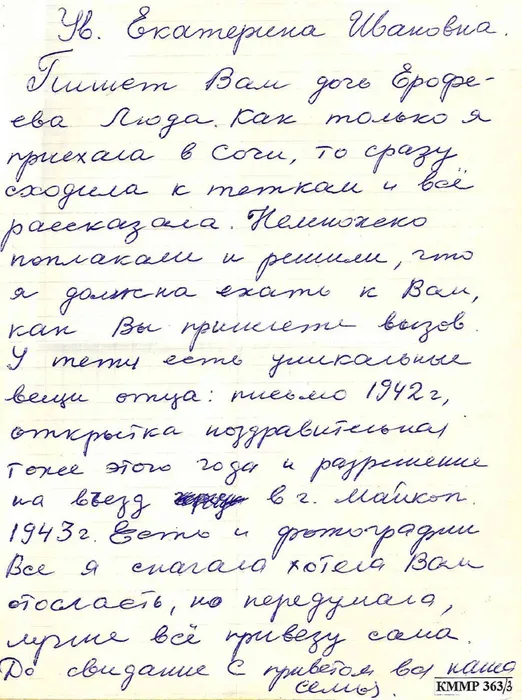 Ув. Екатерина Ивановна.
Пишет Вам дочь Ерофе-
ева Люда. Как только я
приехала в Сочи, то сразу
сходила к теткам и всё
рассказала. Немножко
поплакали и решили, что
я должна ехать к Вам,
как Вы пришлете вызов.
У тети есть уникальные
вещи отца: письмо 1942г,
открытка поздравительная
тоже этого года и разрешение
на въезд в г. Майкоп.
1943г. Есть и фотографии
Все я сначала хотела Вам
отослать, но передумала,
лучше всё привезу сама.
До свидание С приветом вся наша
семья
КММР 363/3